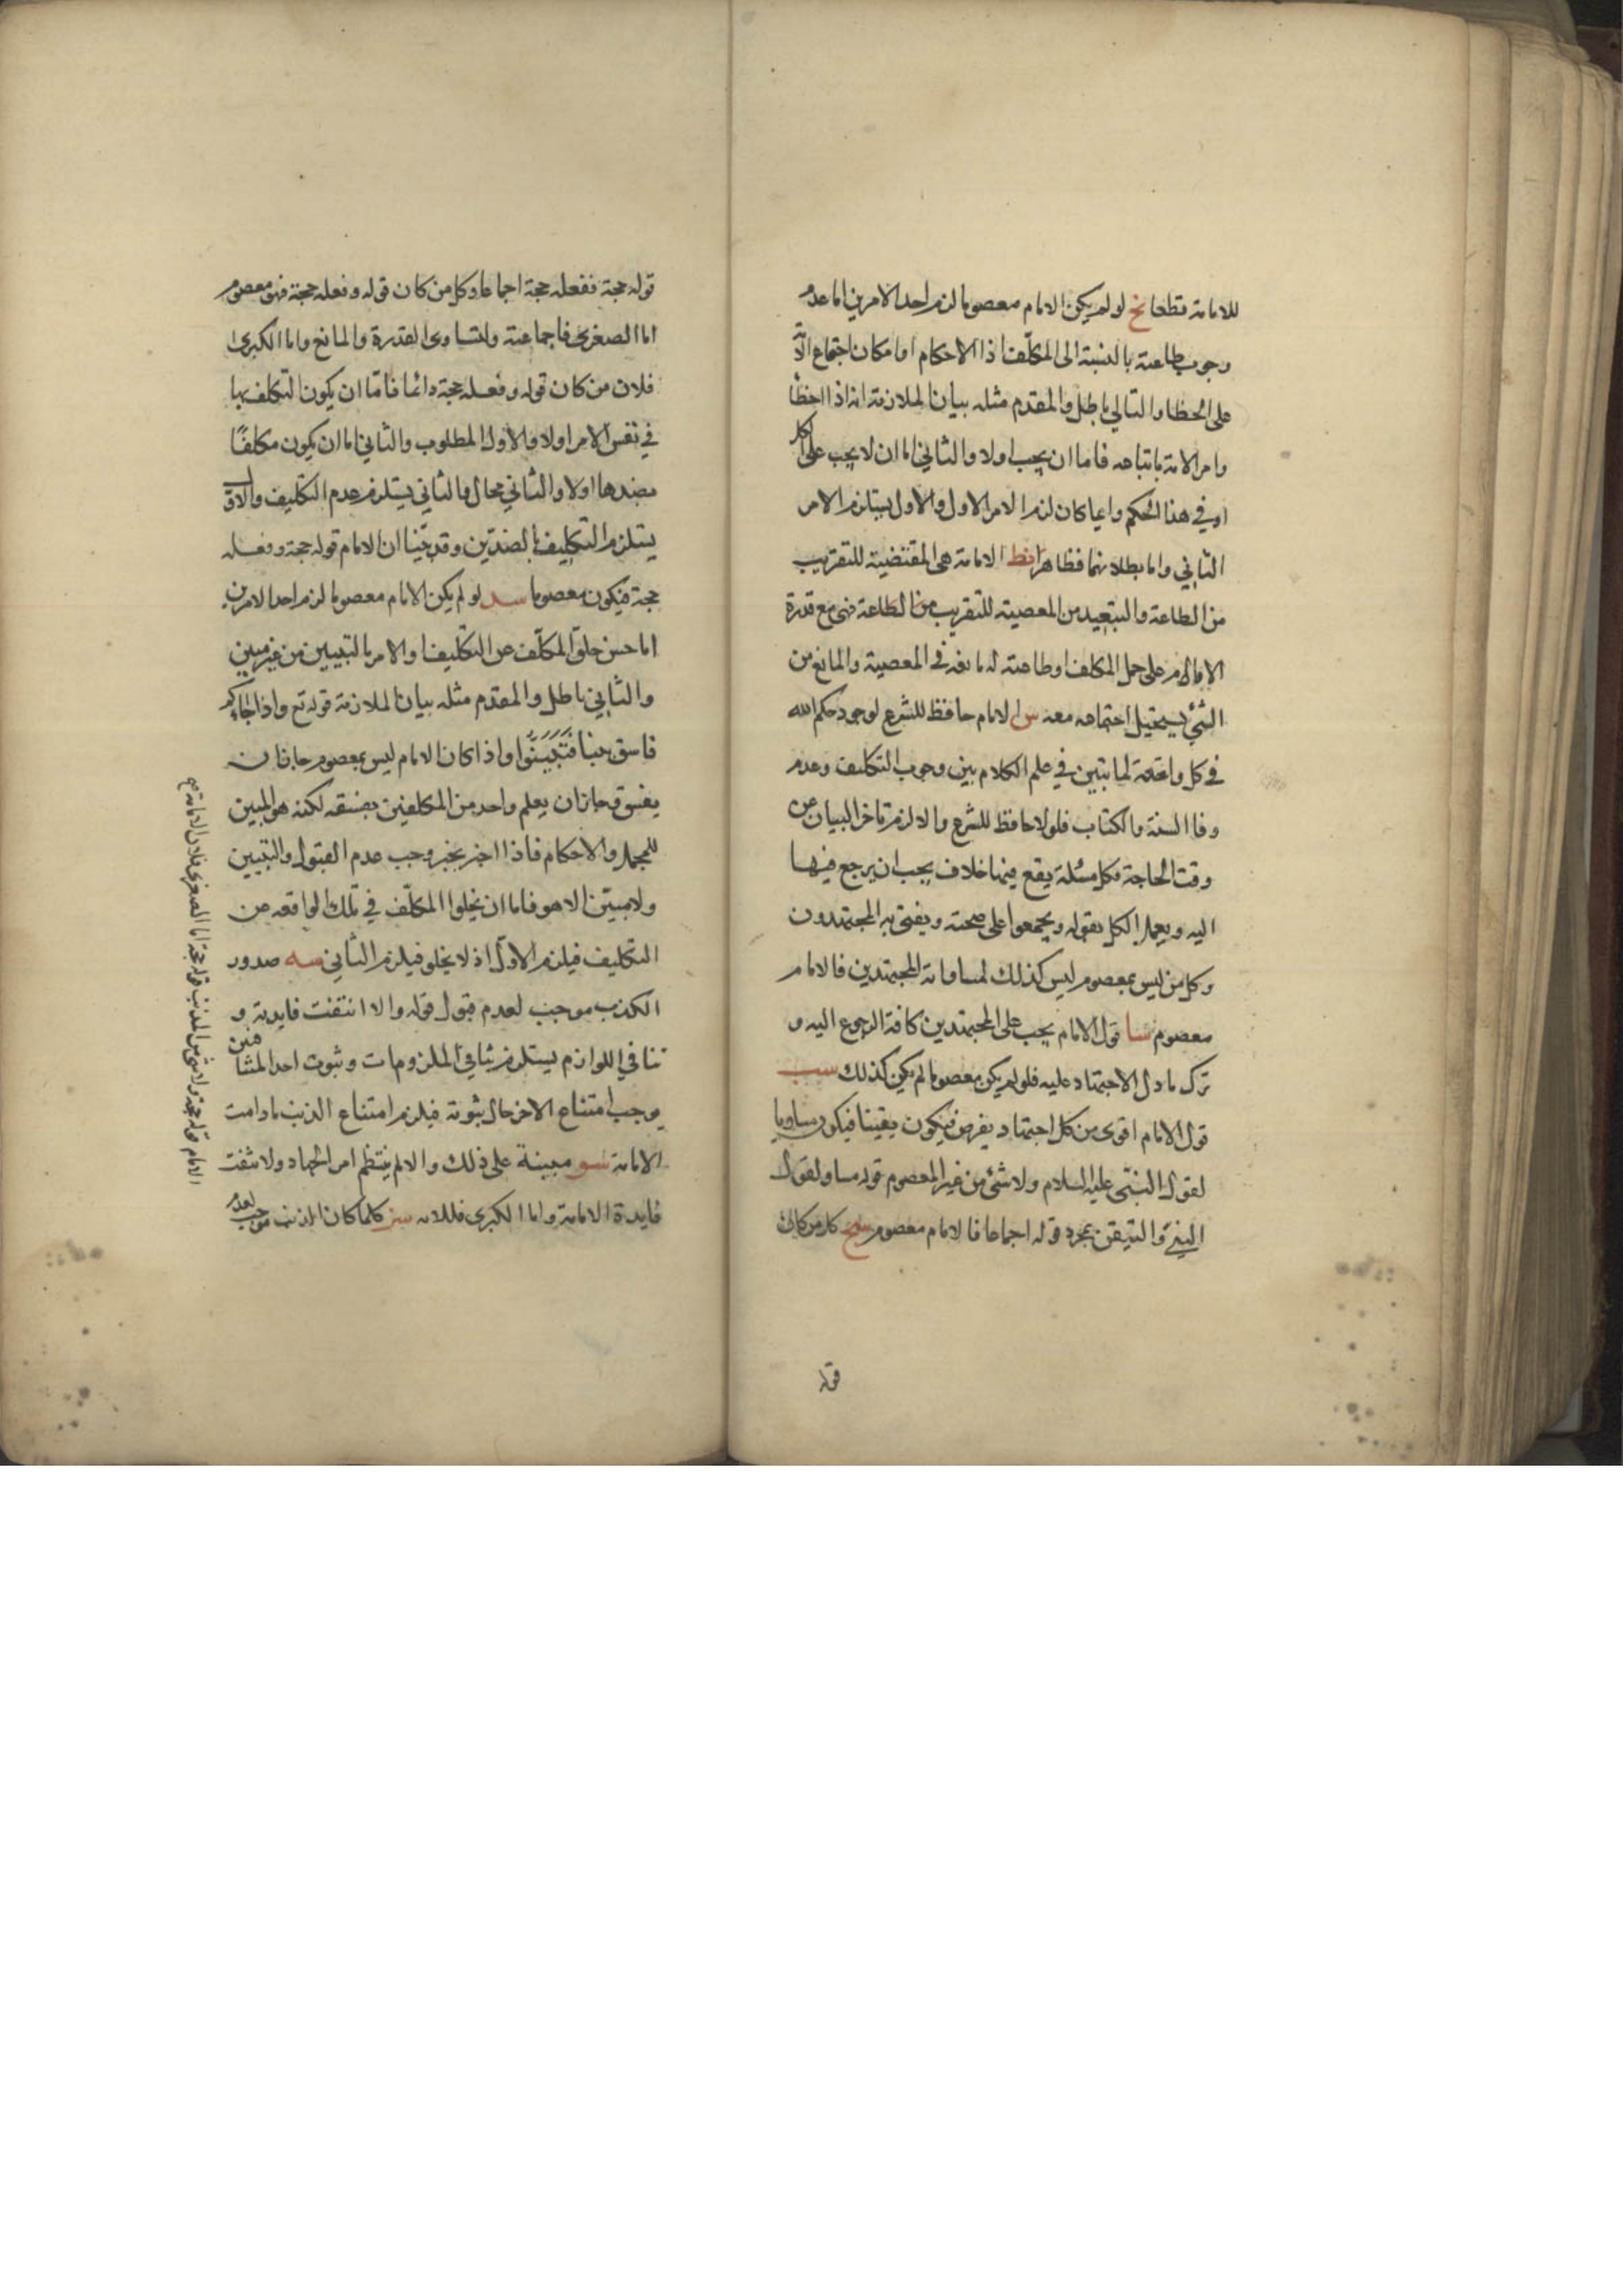 للامامة قطعا نح لو لم يكن الامام معصوما لزم احد الامرين اما عدم
وجوب طاعته بالنسبة الى المكلف اذا الاحكام او امكان اجتماع الامة
على الخطا والتالي باطل والمقدم مثله بيان الملازمة انه اذا اخطأ
وامر الامة باتباعه فاما ان يجب اولا والثاني اما ان لا يجب على الكل
او في هذا الحكم وايما كان لزم الامر الاول والاول يستلزم الامر
الثاني واما بطلانهما فظاهر نط الامامة هى المقتضية للتقريب
من الطاعة والتبعيد من المعصية للتقريب من الطاعة فهى مع قدرة
الامام على حمل المكلف وطاعته له مانعة في المعصية والمانع من
الشئ يستحيل اجتماعه معه س الامام حافظ للشرع لوجود حكم الله
في كل واقعة لما تبين في علم الكلام بين وجوب التكليف وعدم
وفا السنة والكتاب فلولا حافظ للشرع والا لزم تاخر البيان عن
وقت الحاجة فكل مسئلة يقع فيها خلاف يجب ان يرجع فيها
اليه ويعمل الكل بقوله ويجمعوا على صحته ويفتى به المجتهدون
وكل من ليس بمعصوم ليس كذلك لمساواته المجتهدين فالامام
معصوم سا قول الامام يجب على المجتهدين كافة الرجوع اليه و
ترك ما دل الاجتهاد عليه فلو لم يكن معصوما لم يكن كذلك سب
قول الامام اقوى من كل اجتهاد يفرض فيكون يقينا فيكون مساويا
لقول النبى عليه السلام ولا شئ من غير المعصوم قوله مساو لقول
النبي والتيقن بمجرد قوله اجماعا فالامام معصوم سج كل من كان
قوله
قوله حجة ففعله حجة اجماعا وكل من كان قوله وفعله حجة فهو معصوم
اما الصغرى فاجماعية ولتساوى القدرة والمانع واما الكبرى
فلان من كان قوله وفعله حجة دائما فامّا ان يكون التكلف بها
في نفس الامر اولا والاول المطلوب والثاني اما ان يكون مكلفًا
بضدها اولا والثاني محال والثاني يستلزم عدم التكليف والاول
يستلزم التكليف بالضدّين وقد بيّنا ان الامام قوله حجة وفعله
حجة فيكون معصوما سد لو لم يكن الامام معصوما لزم احد الامرين
اما حسن خلوّ المكلّف عن التكليف او الامر بالتبيين من غير مبين
والثاني باطل والمقدم مثله بيان الملازمة قوله تع واذا جاءكم
فاسق بنبا فَتَبَيَّنُوا واذا كان الامام ليس بمعصوم جاز ان
يفسق وجاز ان يعلم واحد من المكلفين بفسقه لكنه هو المبين
للمجمل والاحكام فاذا اخبر بخبر وجب عدم القبول والتبيين
ولا مبيّن الا هو فاما ان يخلوا المكلّف في تلك الواقعه عن
التكليف فيلزم الاوّل اذ لا يخلو فيلزم الثاني سه صدور
الكذب موجب لعدم قبول قوله والا انتفت فايدته و
تنافي اللوازم يستلزم تنافي الملزومات وثبوت احد المتنافيين
يوجب امتناع الاخر حال ثبوته فيلزم امتناع الذنب ما دامت
الامامة سو مبينة على ذلك والا لم ينتظم امر الجهاد ولا نتفت
فايدة الامامة واما الكبرى فللاية سز كلما كان الذنب موجب لعدم
الامام قوله حجة ولا شئ من المذنب قوله حجة اما الصغرى فلان الامامة